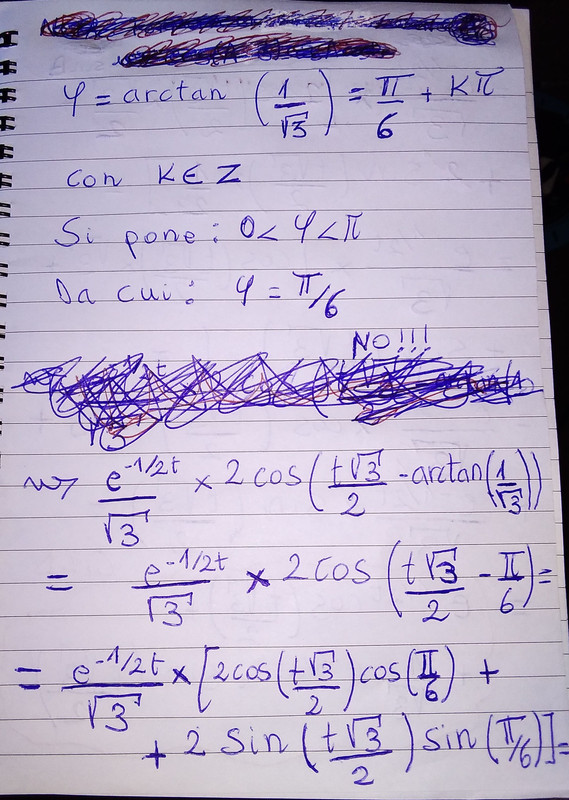 φ = arctan (1/√3) = π/6 + Kπ
con K ∈ Z
Si pone: 0 < φ < π
Da cui: φ = π/6
NO!!!
⇝ e^(-1/2t)/√3 × 2 cos(t√3/2 - arctan(1/√3))
= e^(-1/2t)/√3 × 2 cos (t√3/2 - π/6) =
= e^(-1/2t)/√3 × [2 cos(t√3/2) cos(π/6) +
+ 2 sin (t√3/2) sin (π/6)] =